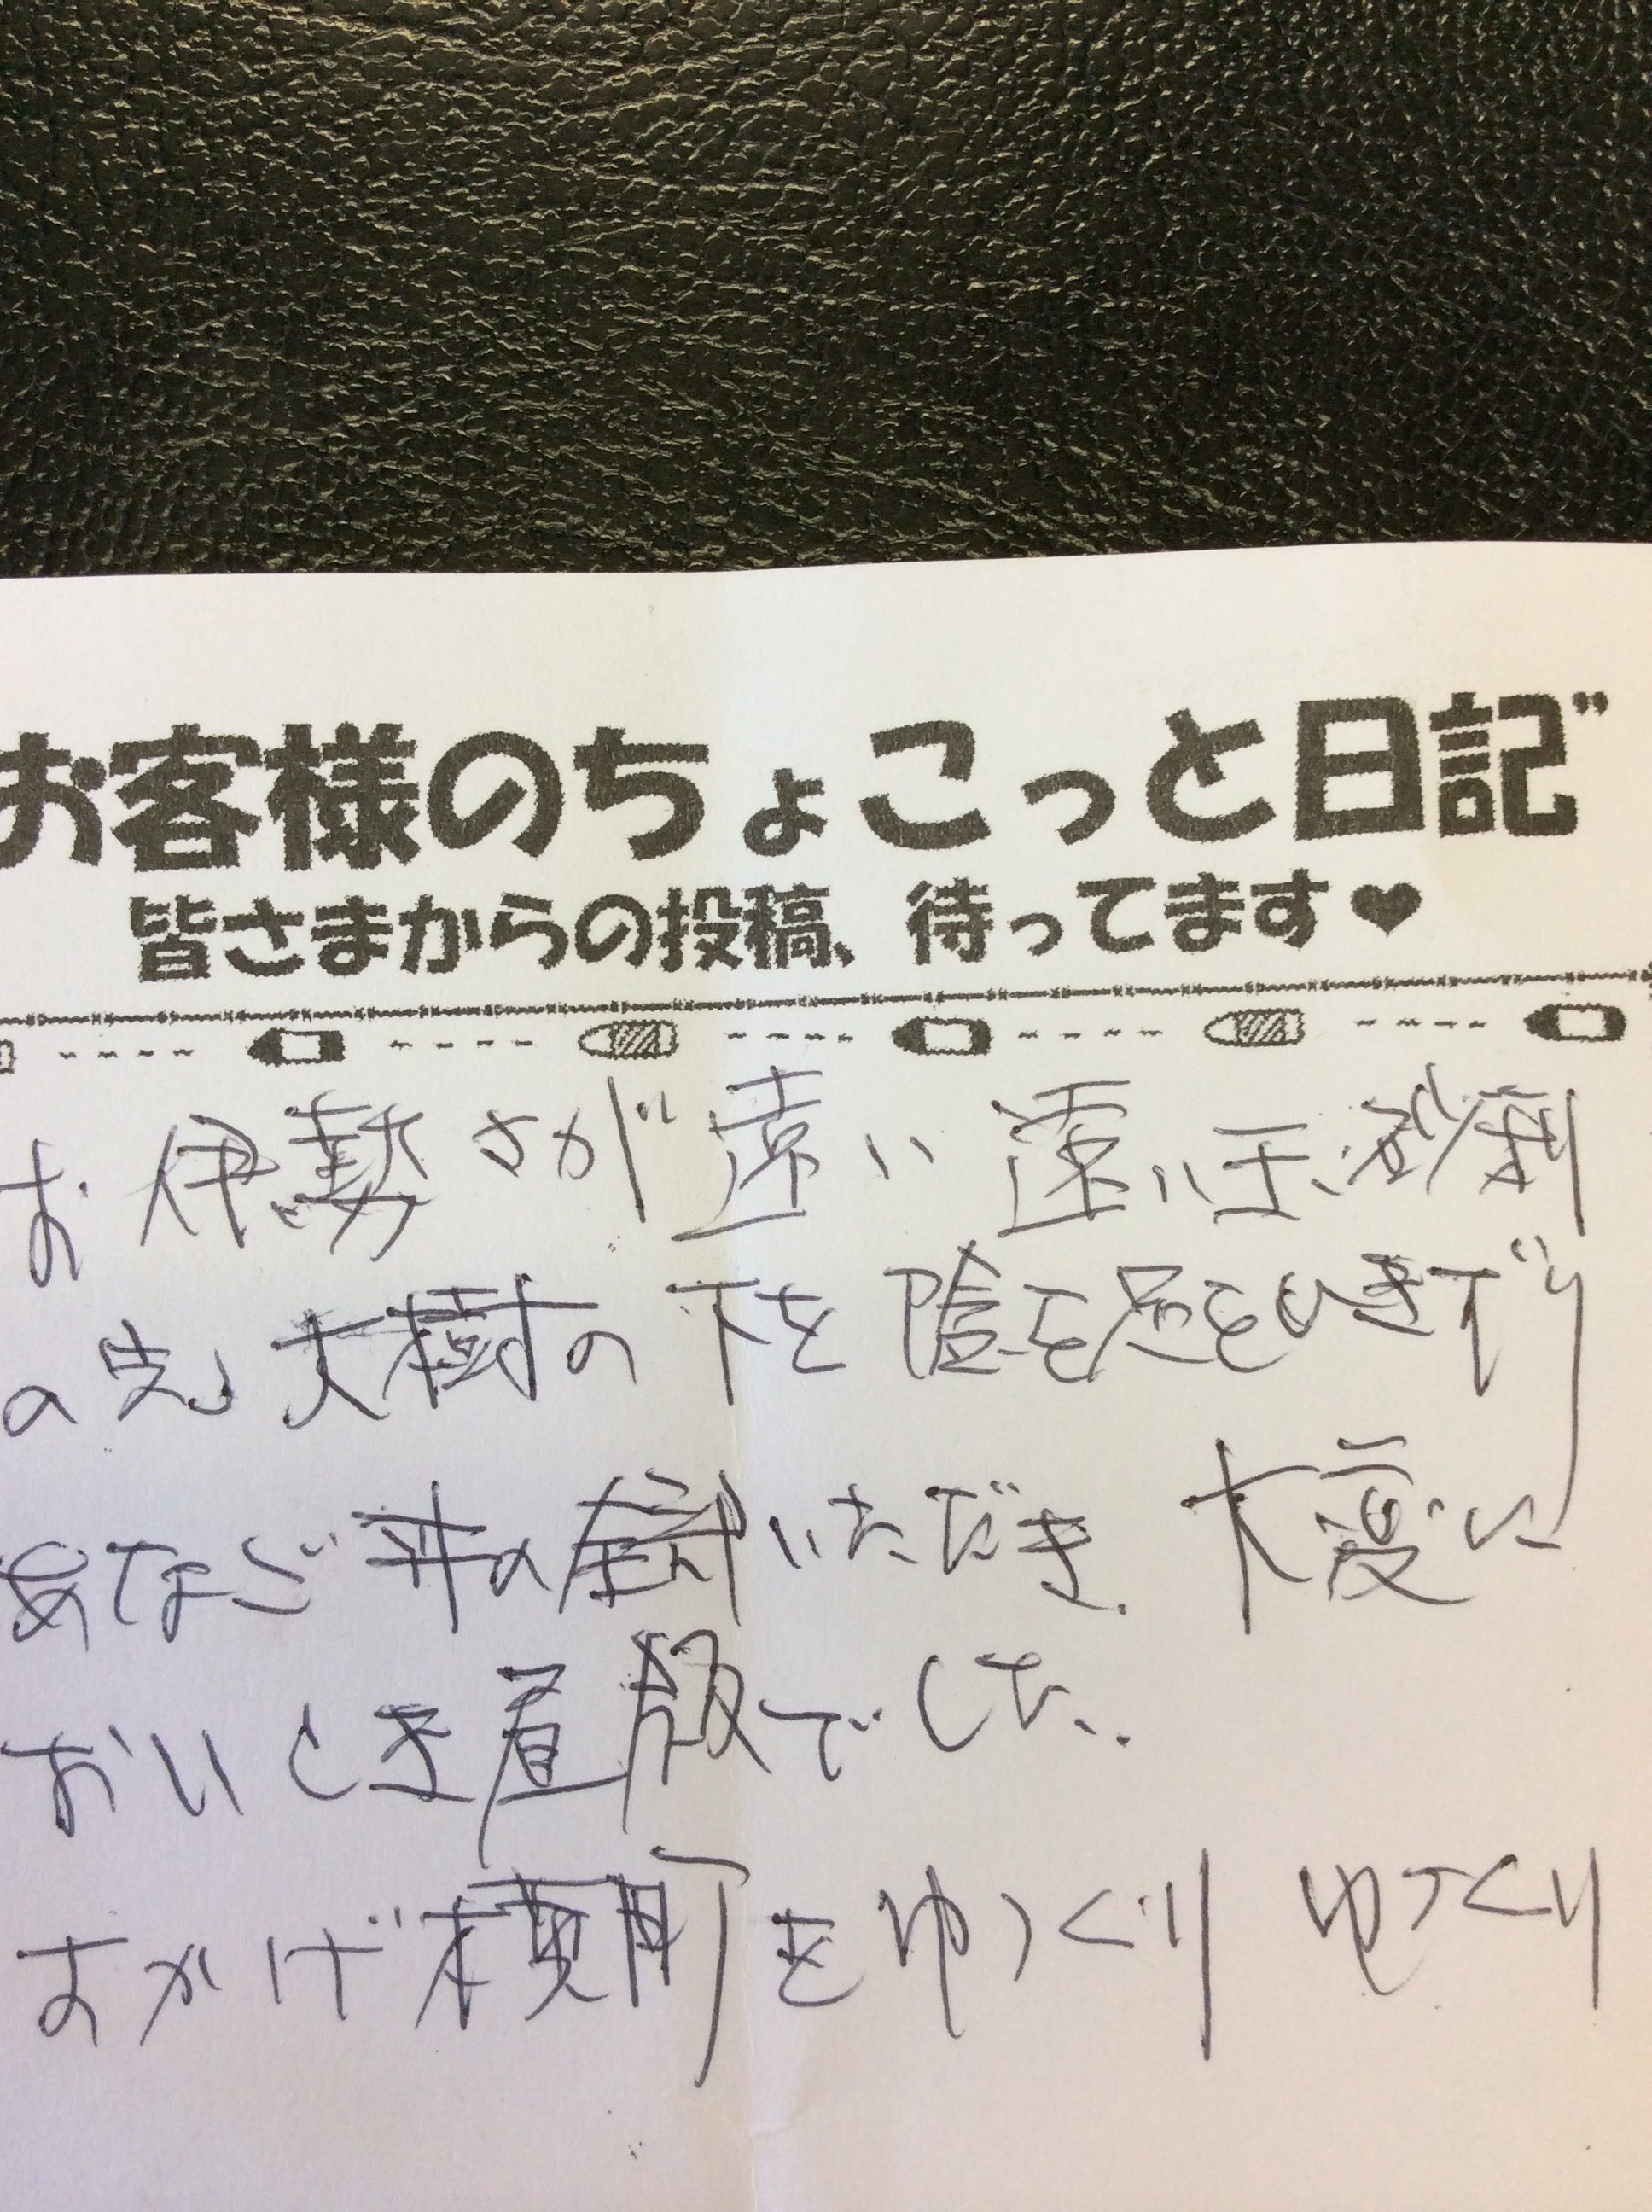 お客様のちょこっと日記
皆さまからの投稿、待ってます♥
お伊勢さが遠い遠い玉砂利
の先 大樹の下を陰を足をひきずり
あなご丼の いただき、大変に
おいしき昼飯でした。
おかげ横町をゆっくり ゆっくり